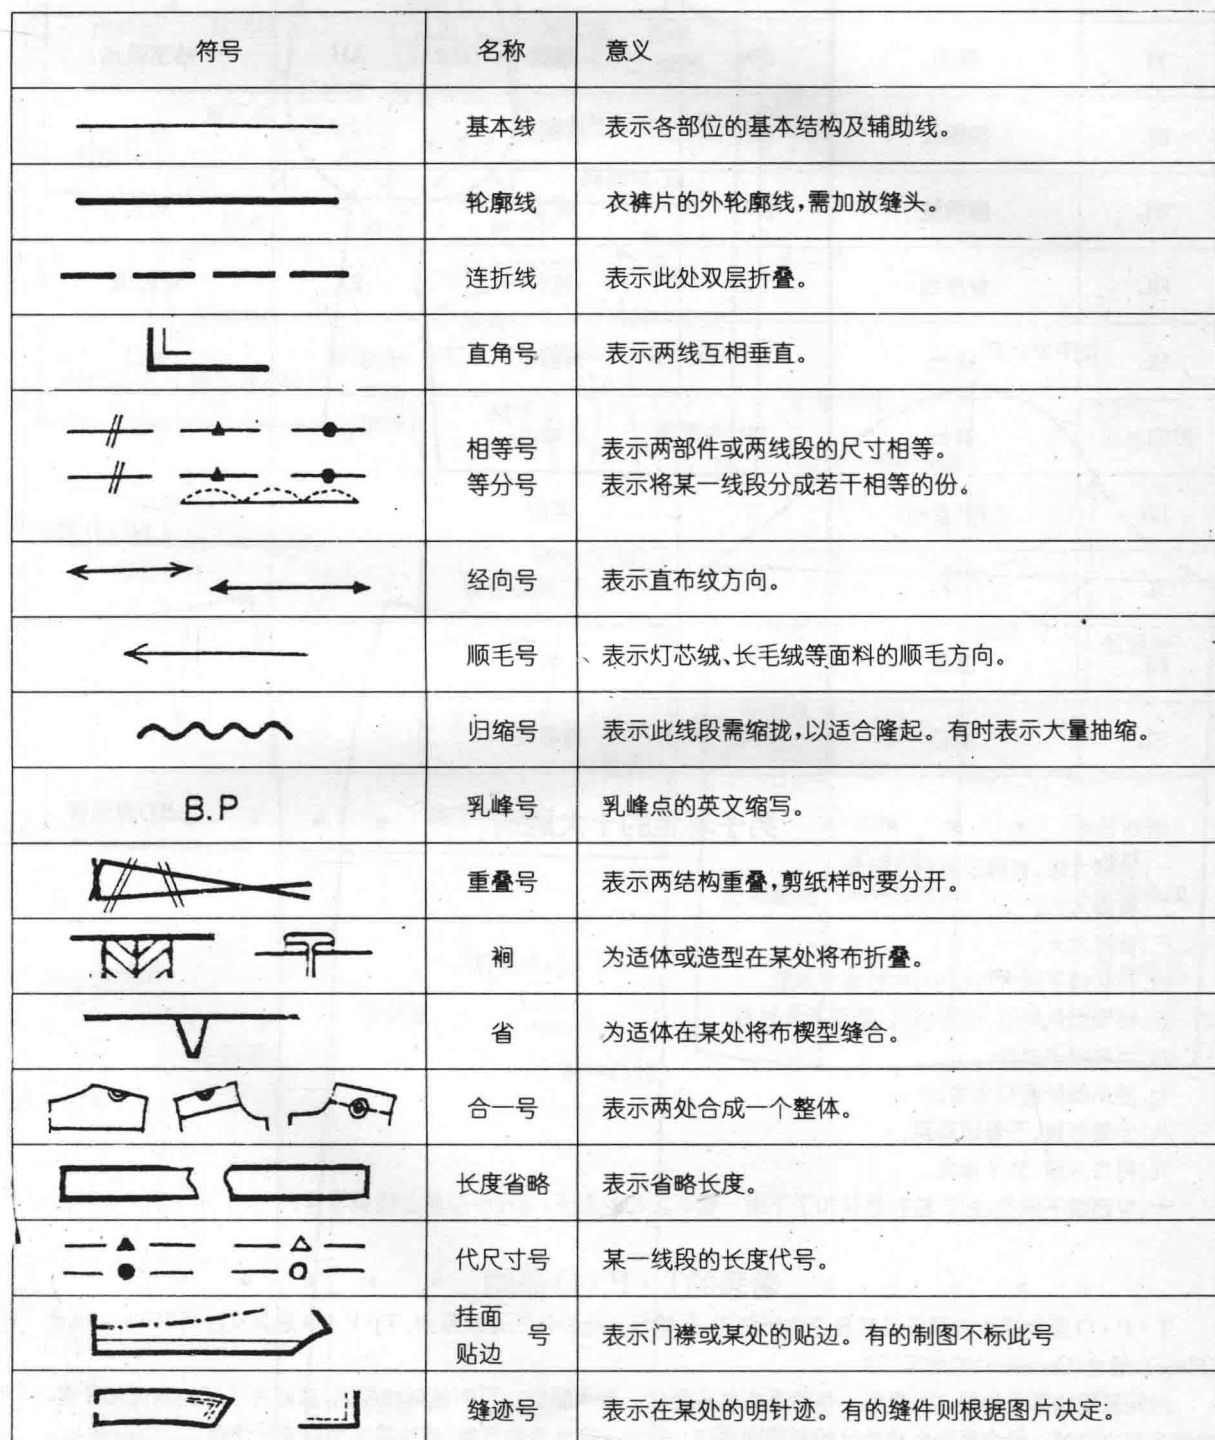 符号 名称 意义
基本线 表示各部位的基本结构及辅助线。
轮廓线 衣裤片的外轮廓线,需加放缝头。
连折线 表示此处双层折叠。
直角号 表示两线互相垂直。
相等号 表示两部件或两线段的尺寸相等。
等分号 表示将某一线段分成若干相等的份。
经向号 表示直布纹方向。
顺毛号 表示灯芯绒、长毛绒等面料的顺毛方向。
归缩号 表示此线段需缩拢,以适合隆起。有时表示大量抽缩。
B.P 乳峰号 乳峰点的英文缩写。
重叠号 表示两结构重叠,剪纸样时要分开。
裥 为适体或造型在某处将布折叠。
省 为适体在某处将布楔型缝合。
合一号 表示两处合成一个整体。
长度省略 表示省略长度。
代尺寸号 某一线段的长度代号。
挂面
号 表示门襟或某处的贴边。有的制图不标此号
贴边
缝迹号 表示在某处的明针迹。有的缝件则根据图片决定。